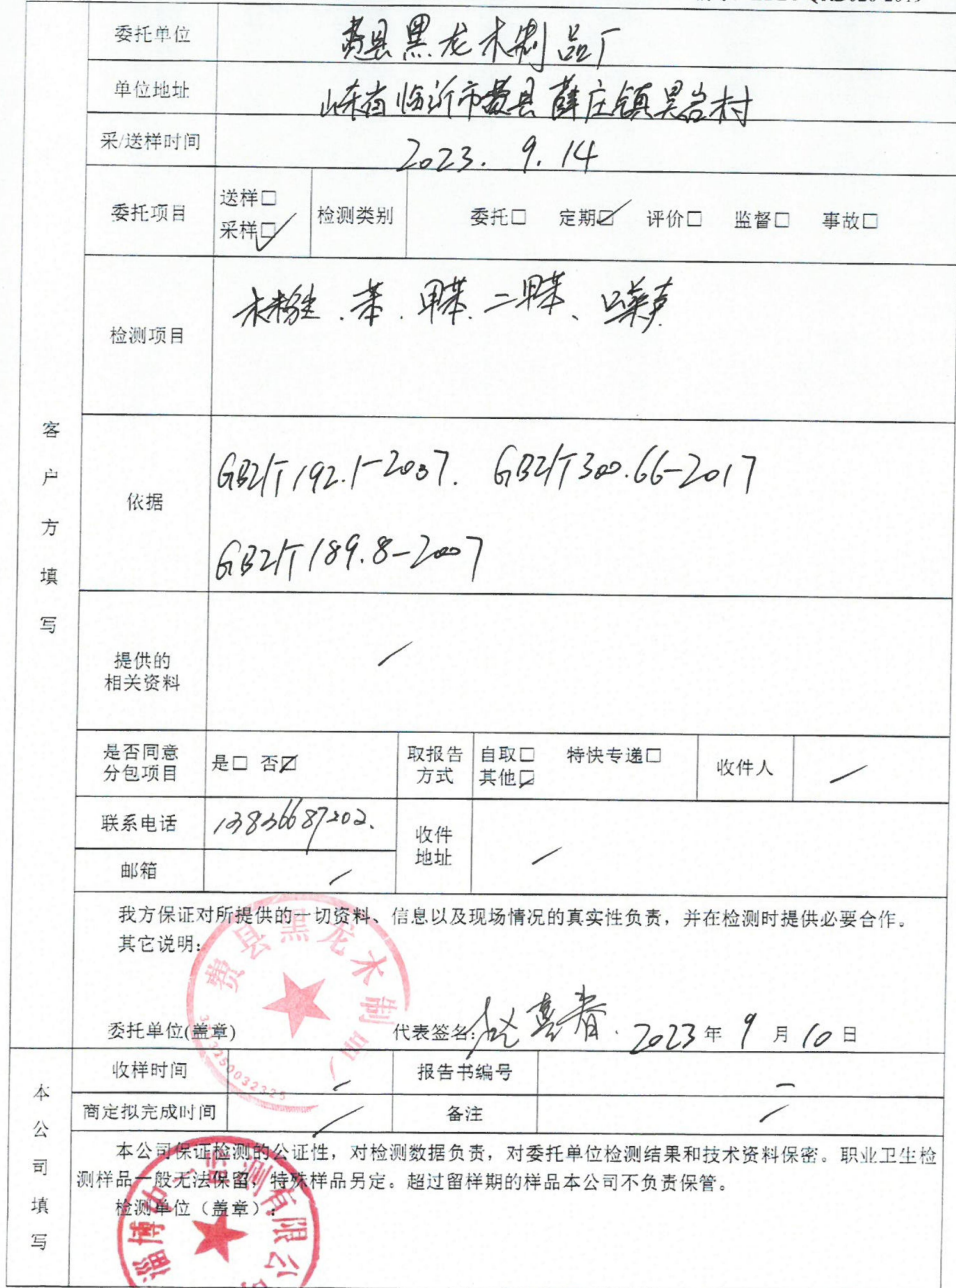 委托单位 费县黑龙木制品厂
单位地址 山东省临沂市费县薛庄镇吴岩村
采/送样时间 2023.9.14
委托项目 送样□ 采样☑ 检测类别 委托□ 定期☑ 评价□ 监督□ 事故□
检测项目 木粉尘、苯、甲苯、二甲苯、噪声
客户方填写
依据 GBZ/T 192.1-2007. GBZ/T 300.66-2017
GBZ/T 189.8-2007
提供的
相关资料 /
是否同意
分包项目 是□ 否☑ 取报告
方式 自取□ 特快专递□
其他☑ 收件人 /
联系电话 13836687202. 收件
地址 /
邮箱 /
我方保证对所提供的一切资料、信息以及现场情况的真实性负责，并在检测时提供必要合作。
其它说明：
费县黑龙木制品厂
委托单位(盖章) 代表签名: 2023年9月10日
本公司填写
收样时间 / 报告书编号 /
商定拟完成时间 / 备注 /
本公司保证检测的公证性，对检测数据负责，对委托单位检测结果和技术资料保密。职业卫生检
测样品一般无法保留，特殊样品另定。超过留样期的样品本公司不负责保管。
检测单位（盖章）：